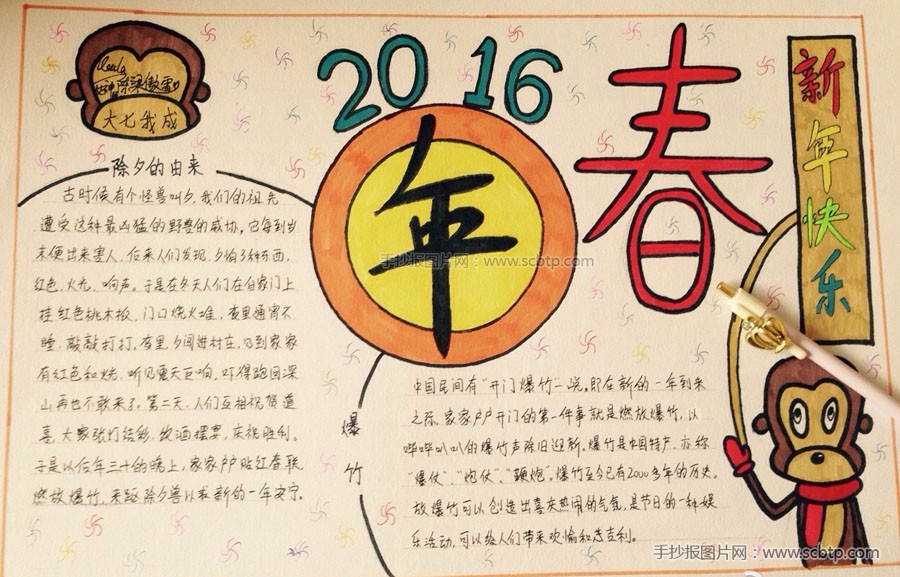 大七我成
2016
年
春
新年快乐
除夕的由来
古时候有个怪兽叫夕,我们的祖先
遭受这种最凶猛的野兽的威协。它每到岁
末便出来害人。后来人们发现,夕怕3种东西,
红色、火光、响声。于是在冬天人们在自家门上
挂红色桃木板,门口烧火堆,夜里通宵不
睡、敲敲打打。夜里夕闯进村庄,见到家家
有红色和烧,听见震天巨响,吓得跑回深
山再也不敢来了。第二天,人们互相祝贺道
喜,大家张灯结彩,饮酒摆宴,庆祝胜利。
于是以后年三十的晚上,家家户户贴红春联,
燃放爆竹,来驱除夕兽以求新的一年安宁。
爆竹
中国民间有“开门爆竹”一说。即在新的一年到来
之际,家家户户开门的第一件事就是燃放爆竹,以
哔哔叭叭的爆竹声除旧迎新。爆竹是中国特产,亦称
“爆仗”、“炮仗”、“鞭炮”。爆竹至今已有2000多年的历史。
放爆竹可以创造出喜庆热闹的气氛,是节日的一种娱
乐活动,可以给人们带来欢愉和吉利。
手抄报图片网:www.scbtp.com
手抄报图片网:www.scbtp.com